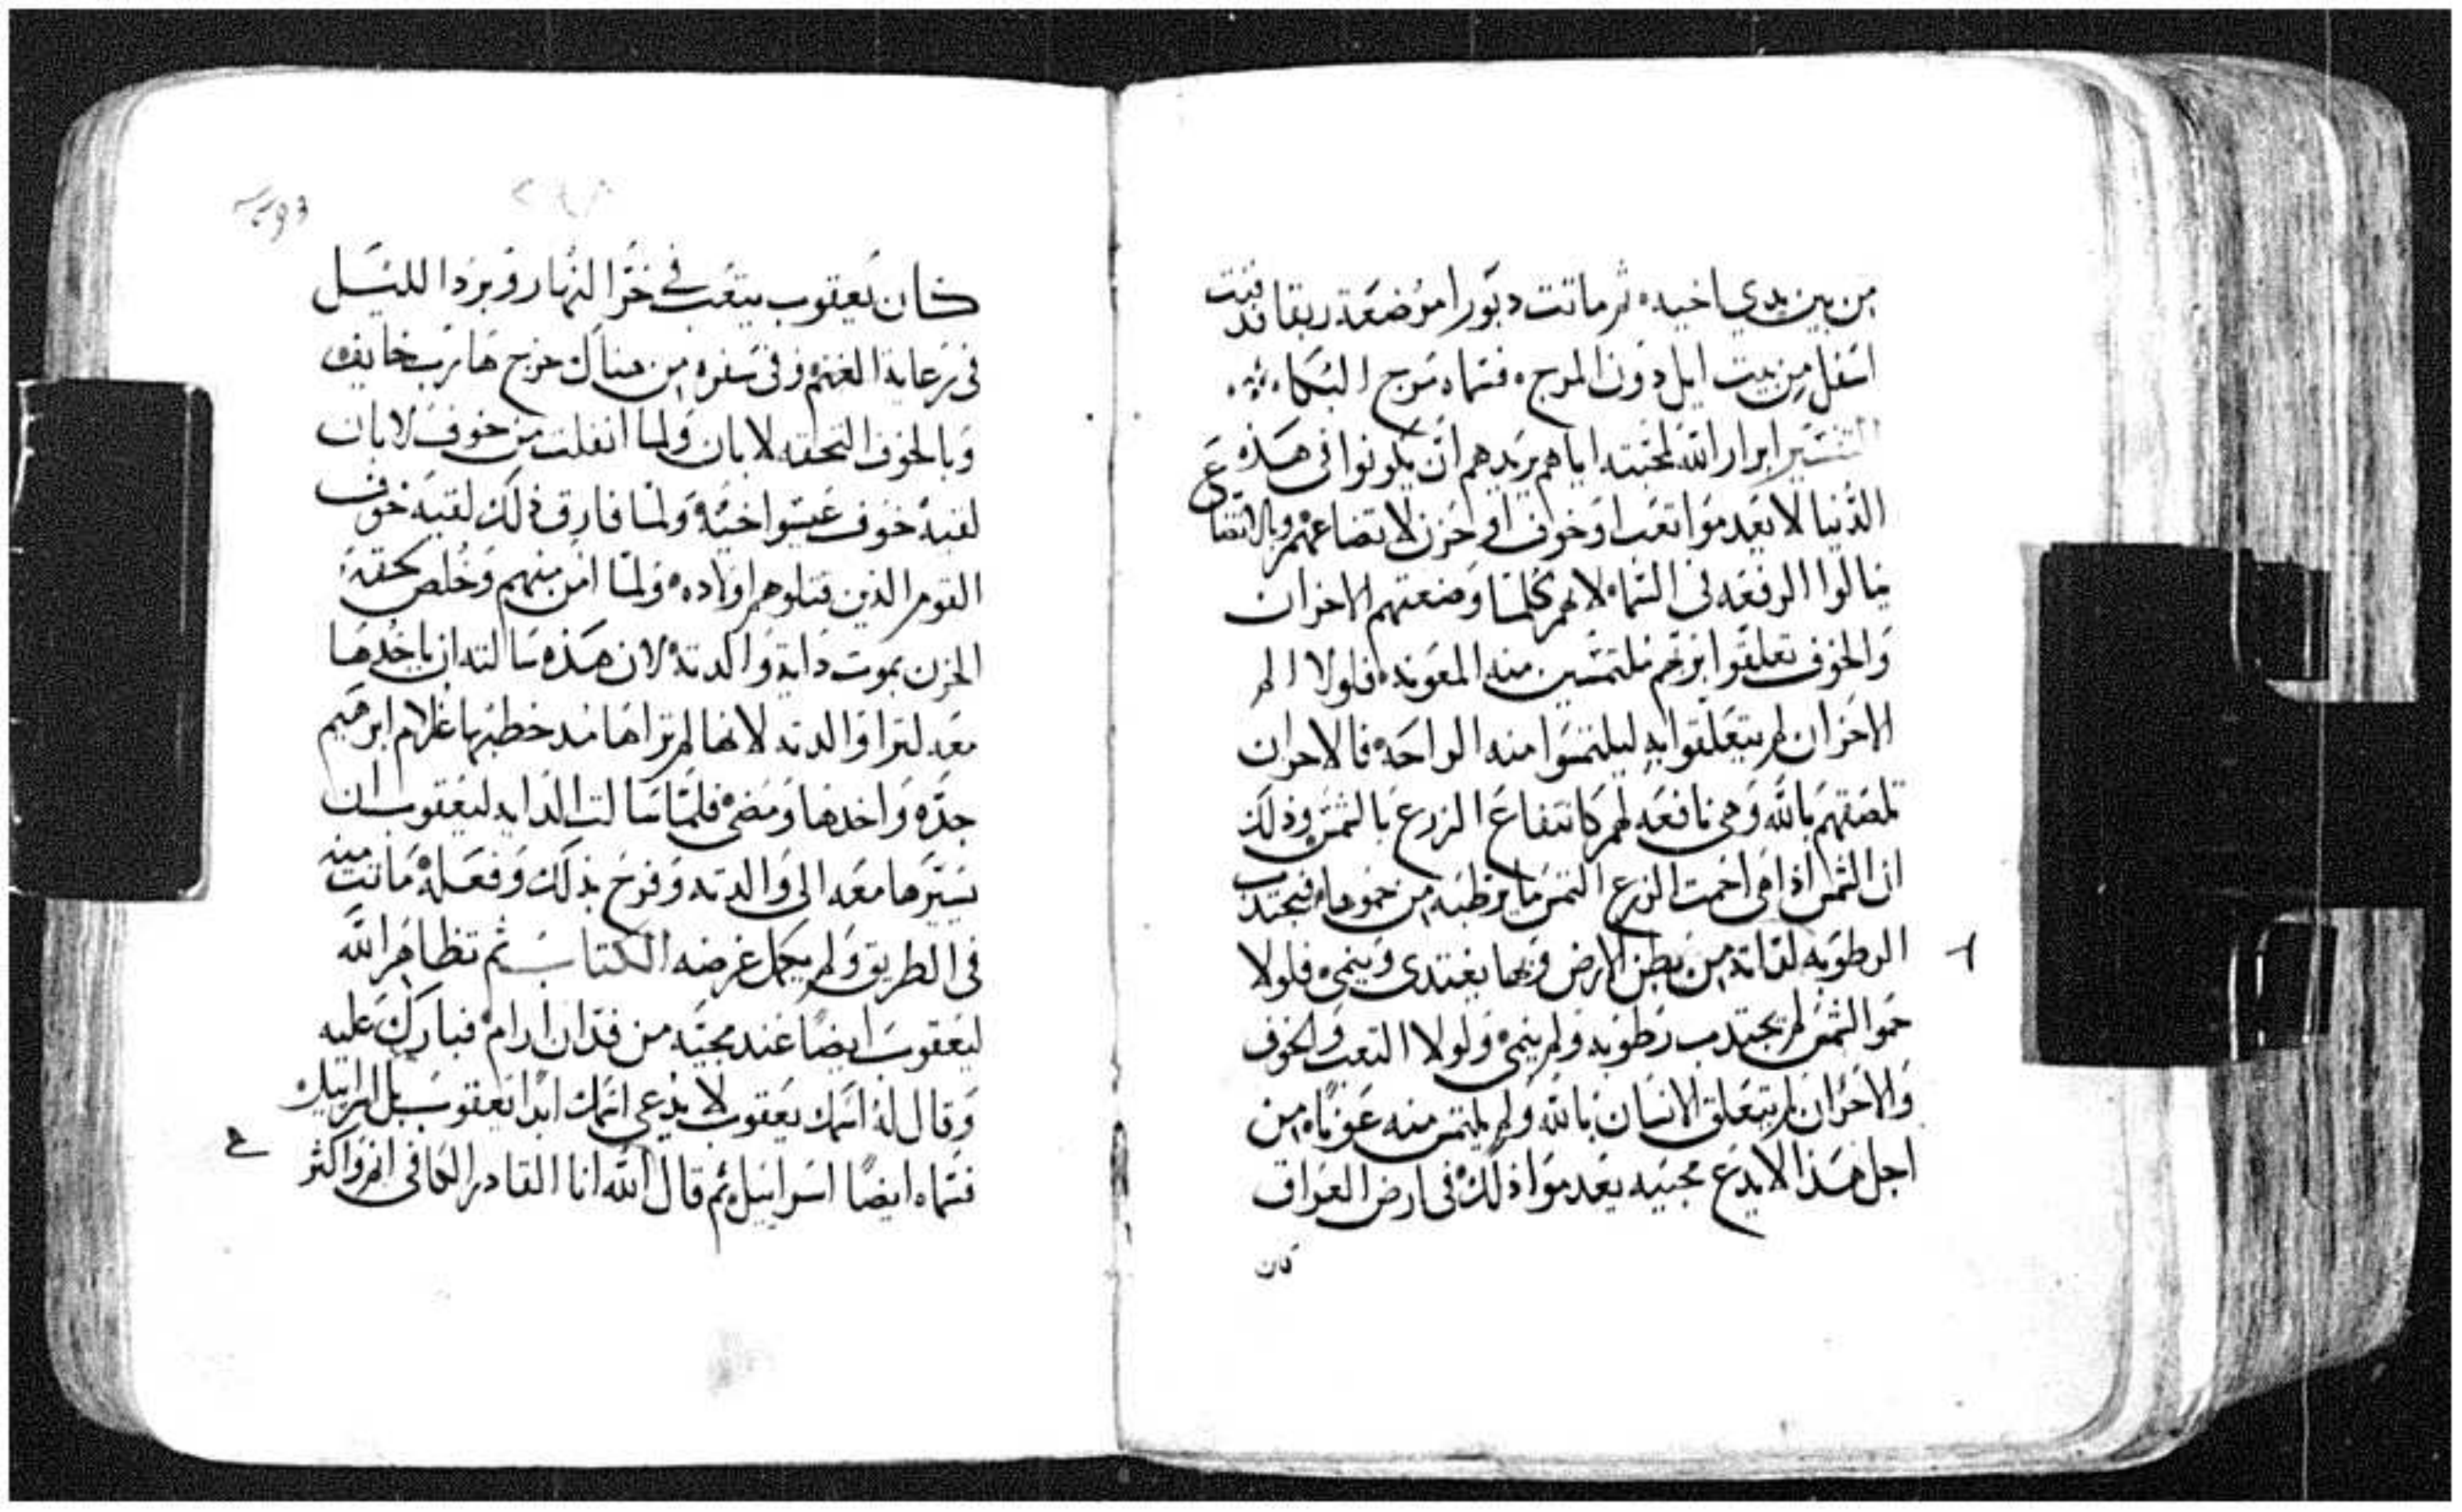 من بين يدي اخيه ثم ماتت دبورا مرضعة ربقا فدفنت
اسفل من بيت ايل دون المرج فسماه مرج البكاء
التفسير ابرار الله لمحبته اياهم يريدهم ان يكونوا في هذه
الدنيا لا يعدموا تعب او خوف او حزن لاتضاعهم وبالاتضاع
ينالوا الرفعه في السماء لانهم كلما وضعتهم الاحزان
والخوف تعلقوا بربهم ملتمسين منه المعونه فلولا الم
الاحزان لم يتعلقوا به ليلتمسوا منه الراحه فالاحزان
تلصقهم بالله وهي نافعه لهم كانتفاع الزرع بالشمس وذلك
ان الشمس اذا هي احمت الزرع التمس ما يرطبه من حموها فيجتدب
الرطوبه لداته من بطن الارض وبها يغتدي وينمي فلولا
حمو الشمس لم يجتدب رطوبه ولم ينمي ولولا التعب والخوف
والاحزان لم يتعلق الانسان بالله ولم يلتمس منه عونا من
اجل هذا لا يدع محبيه يعدموا ذلك في ارض العراق
كان
كان يعقوب يتعب في حر النهار وبرد الليل
في رعاية الغنم وفي سفره من هناك خرج هارب خايف
وبالخوف التحقه لابان ولما انفلت من خوف لابان
لقيه خوف عيسوا اخيه ولما فارق ذلك لقيه خوف
القوم الذين قتلوهم اولاده ولما امن منهم وخلص لحقه
الحزن بموت داية والدته لان هذه سالته ان ياخدها
معه لترا والدته لانها لم تراها مند خطبها غلام ابرهيم
جده واخدها ومضى فلما سالت الدايه ليعقوب ان
يسيرها معه الى والدته وفرح بذلك وفعله ماتت منه
في الطريق ولم يكمل غرضه الكتاب ثم تظاهر الله
ليعقوب ايضا عند مجيه من فدان ارام فبارك عليه
وقال له اسمك يعقوب لا يدعى اسمك ابدا يعقوب بل اسرائيل
فسماه ايضا اسراييل ثم قال الله انا القادر الكافي انمو واكثر